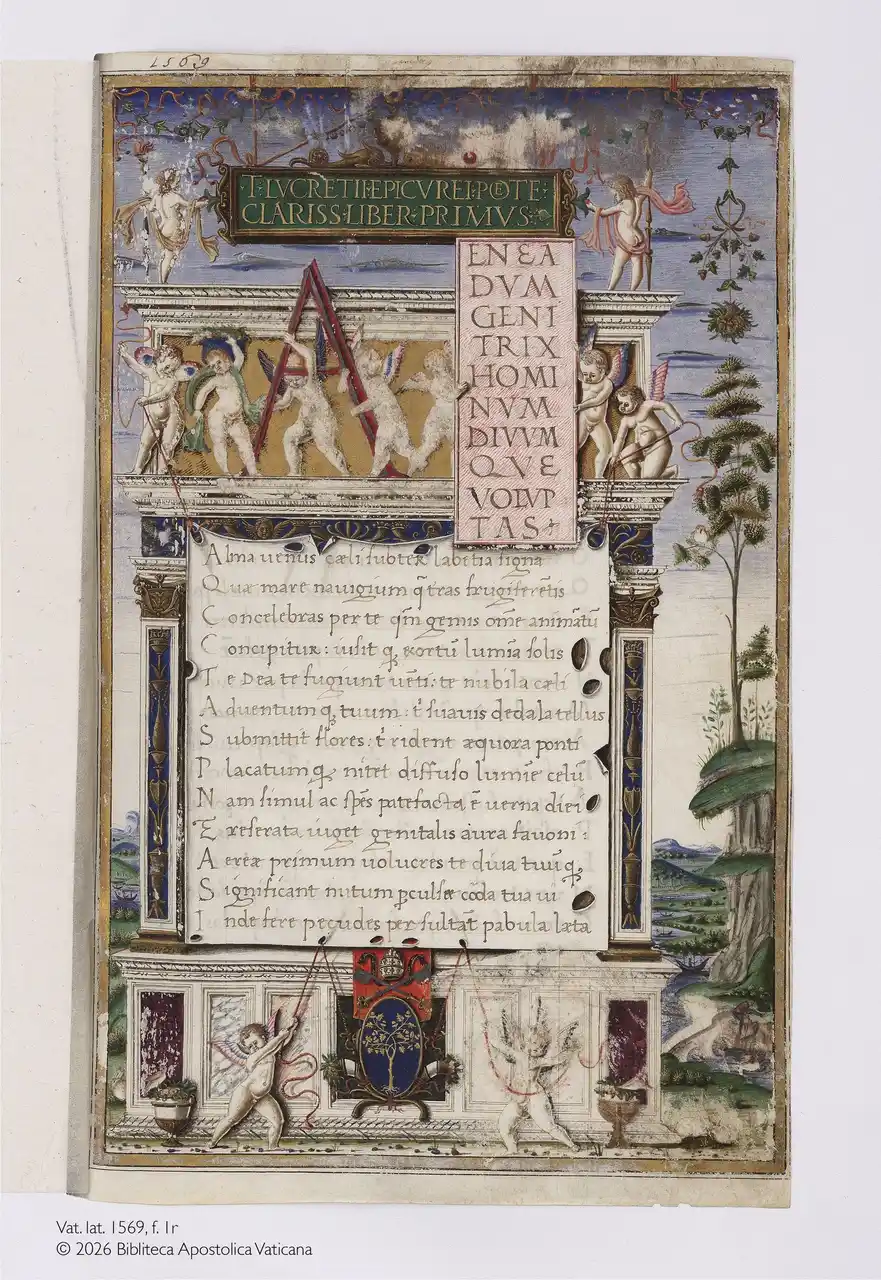 1569
·T·LVCRETII·EPICVREI·POETE·
CLARISS·LIBER·PRIMVS·
A
ENEA
DVM
GENI
TRIX
HOMI
NVM
DIVVM
QVE
VOLVP
TAS
Alma uenus cæli subter labētia signa
Quæ mare nauigium q̄ tras frugiferētis
Concelebras per te qm̄ genus ōme animātū
Concipitur: iusit q̨ exortū lumīa solis
Te Dea te fugiunt uēti: te nubila cæli
Aduentum q̨ tuum: t̄ suauis dedala tellus
Submittit flores: t̄ rident æquora ponti
Placatum q̨ nitet diffuso lumīe celū
Nam simul ac sp̄es patefacta ē uerna diei
Et reserata uiget genitalis aura fauoni:
Aereæ primum uolucres te diua tuū q̨
Significant initum ꝑculsæ corda tua ui
Inde fere pecudes persultāt pabula læta
Vat. lat. 1569, f. 1r
© 2026 Bibliteca Apostolica Vaticana